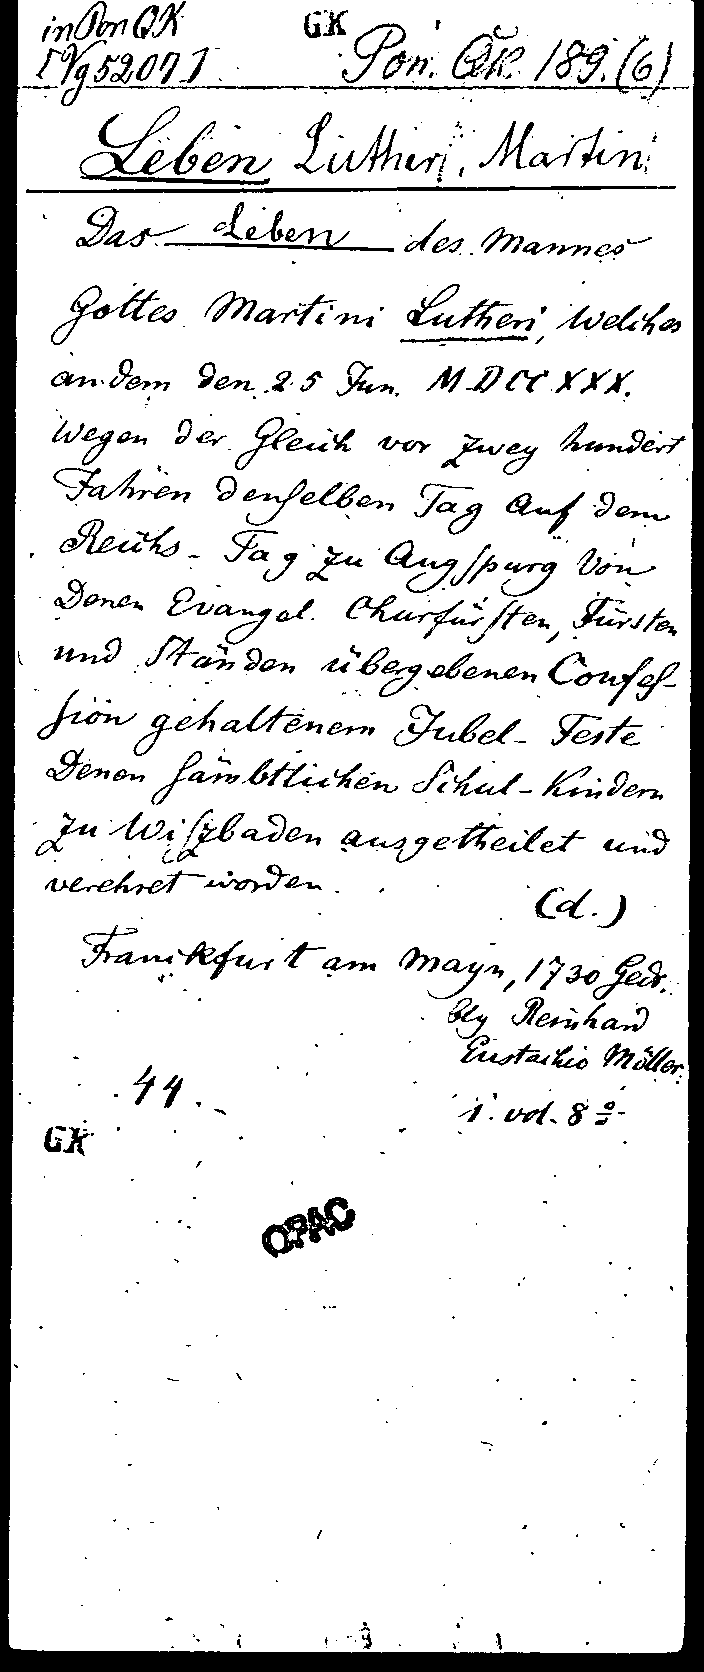 in Pon QK
[Vg 5207]
GK
Pon. QK. 189. (6)
Leben Lutheri, Martini
Das Leben des Mannes
Gottes Martini Lutheri, welches
an dem den 25 Jun. MDCCXXX.
wegen der Gleich vor zwey hundert
Jahren denselben Tag auf dem
Reichs-Tag zu Augspurg von
Denen Evangel. Churfürsten, Fürsten
und Ständen übergebenen Confes-
sion gehaltenem Jubel-Feste
Denen sämbtlichen Schul-Kindern
zu Wiszbaden ausgetheilet und
verehret worden.
(d.)
Franckfurt am Mayn, 1730 Gedr.
bey Reinhard
Eustachio Möller.
44.
1. vol. 8º
GK
OPAC